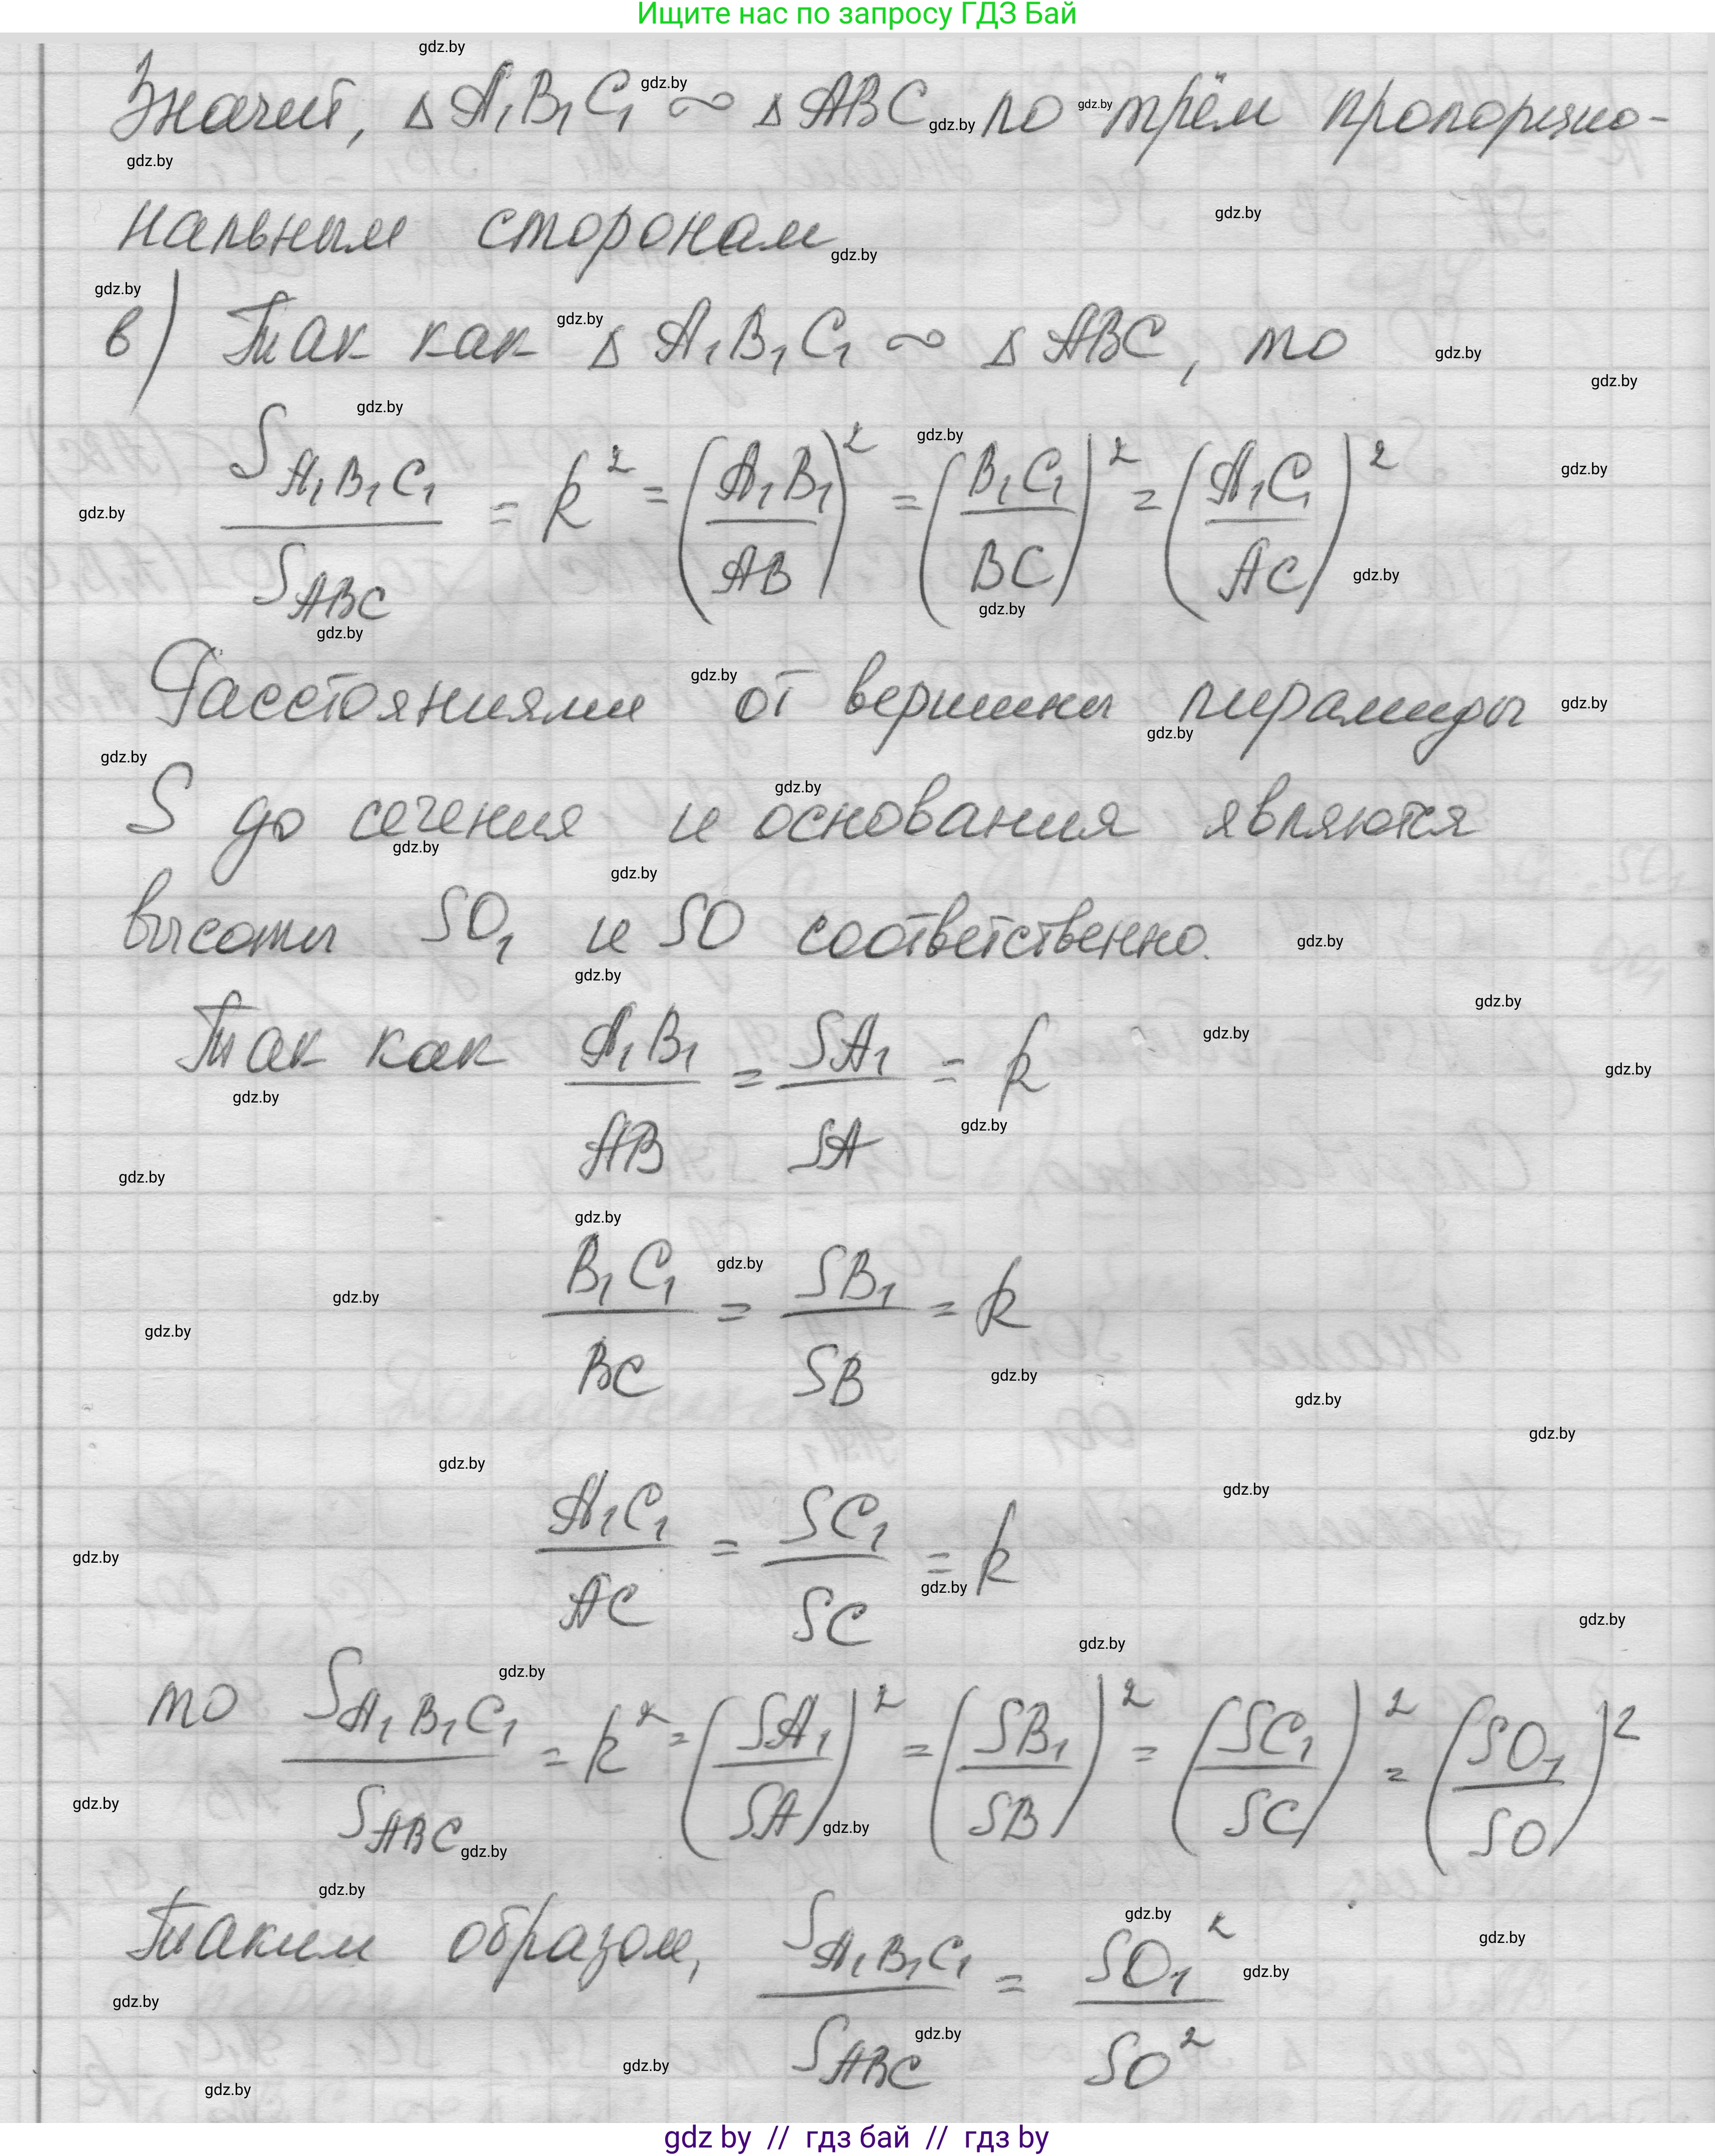 Ищите нас по запросу ГДЗ Бай
Значит, △A₁B₁C₁ ∾ △ABC по трём пропорцио-
нальным сторонам
в) Так как △A₁B₁C₁ ∾ △ABC, то
S_A₁B₁C₁ / S_ABC = k² = (A₁B₁/AB)² = (B₁C₁/BC)² = (A₁C₁/AC)²
Расстояниями от вершины пирамиды
S до сечения и основания являются
высоты SO₁ и SO соответственно.
Так как A₁B₁/AB = SA₁/SA = k
B₁C₁/BC = SB₁/SB = k
A₁C₁/AC = SC₁/SC = k
то S_A₁B₁C₁ / S_ABC = k² = (SA₁/SA)² = (SB₁/SB)² = (SC₁/SC)² = (SO₁/SO)²
Таким образом, S_A₁B₁C₁ / S_ABC = SO₁² / SO²
gdz by // гдз бай // гдз by